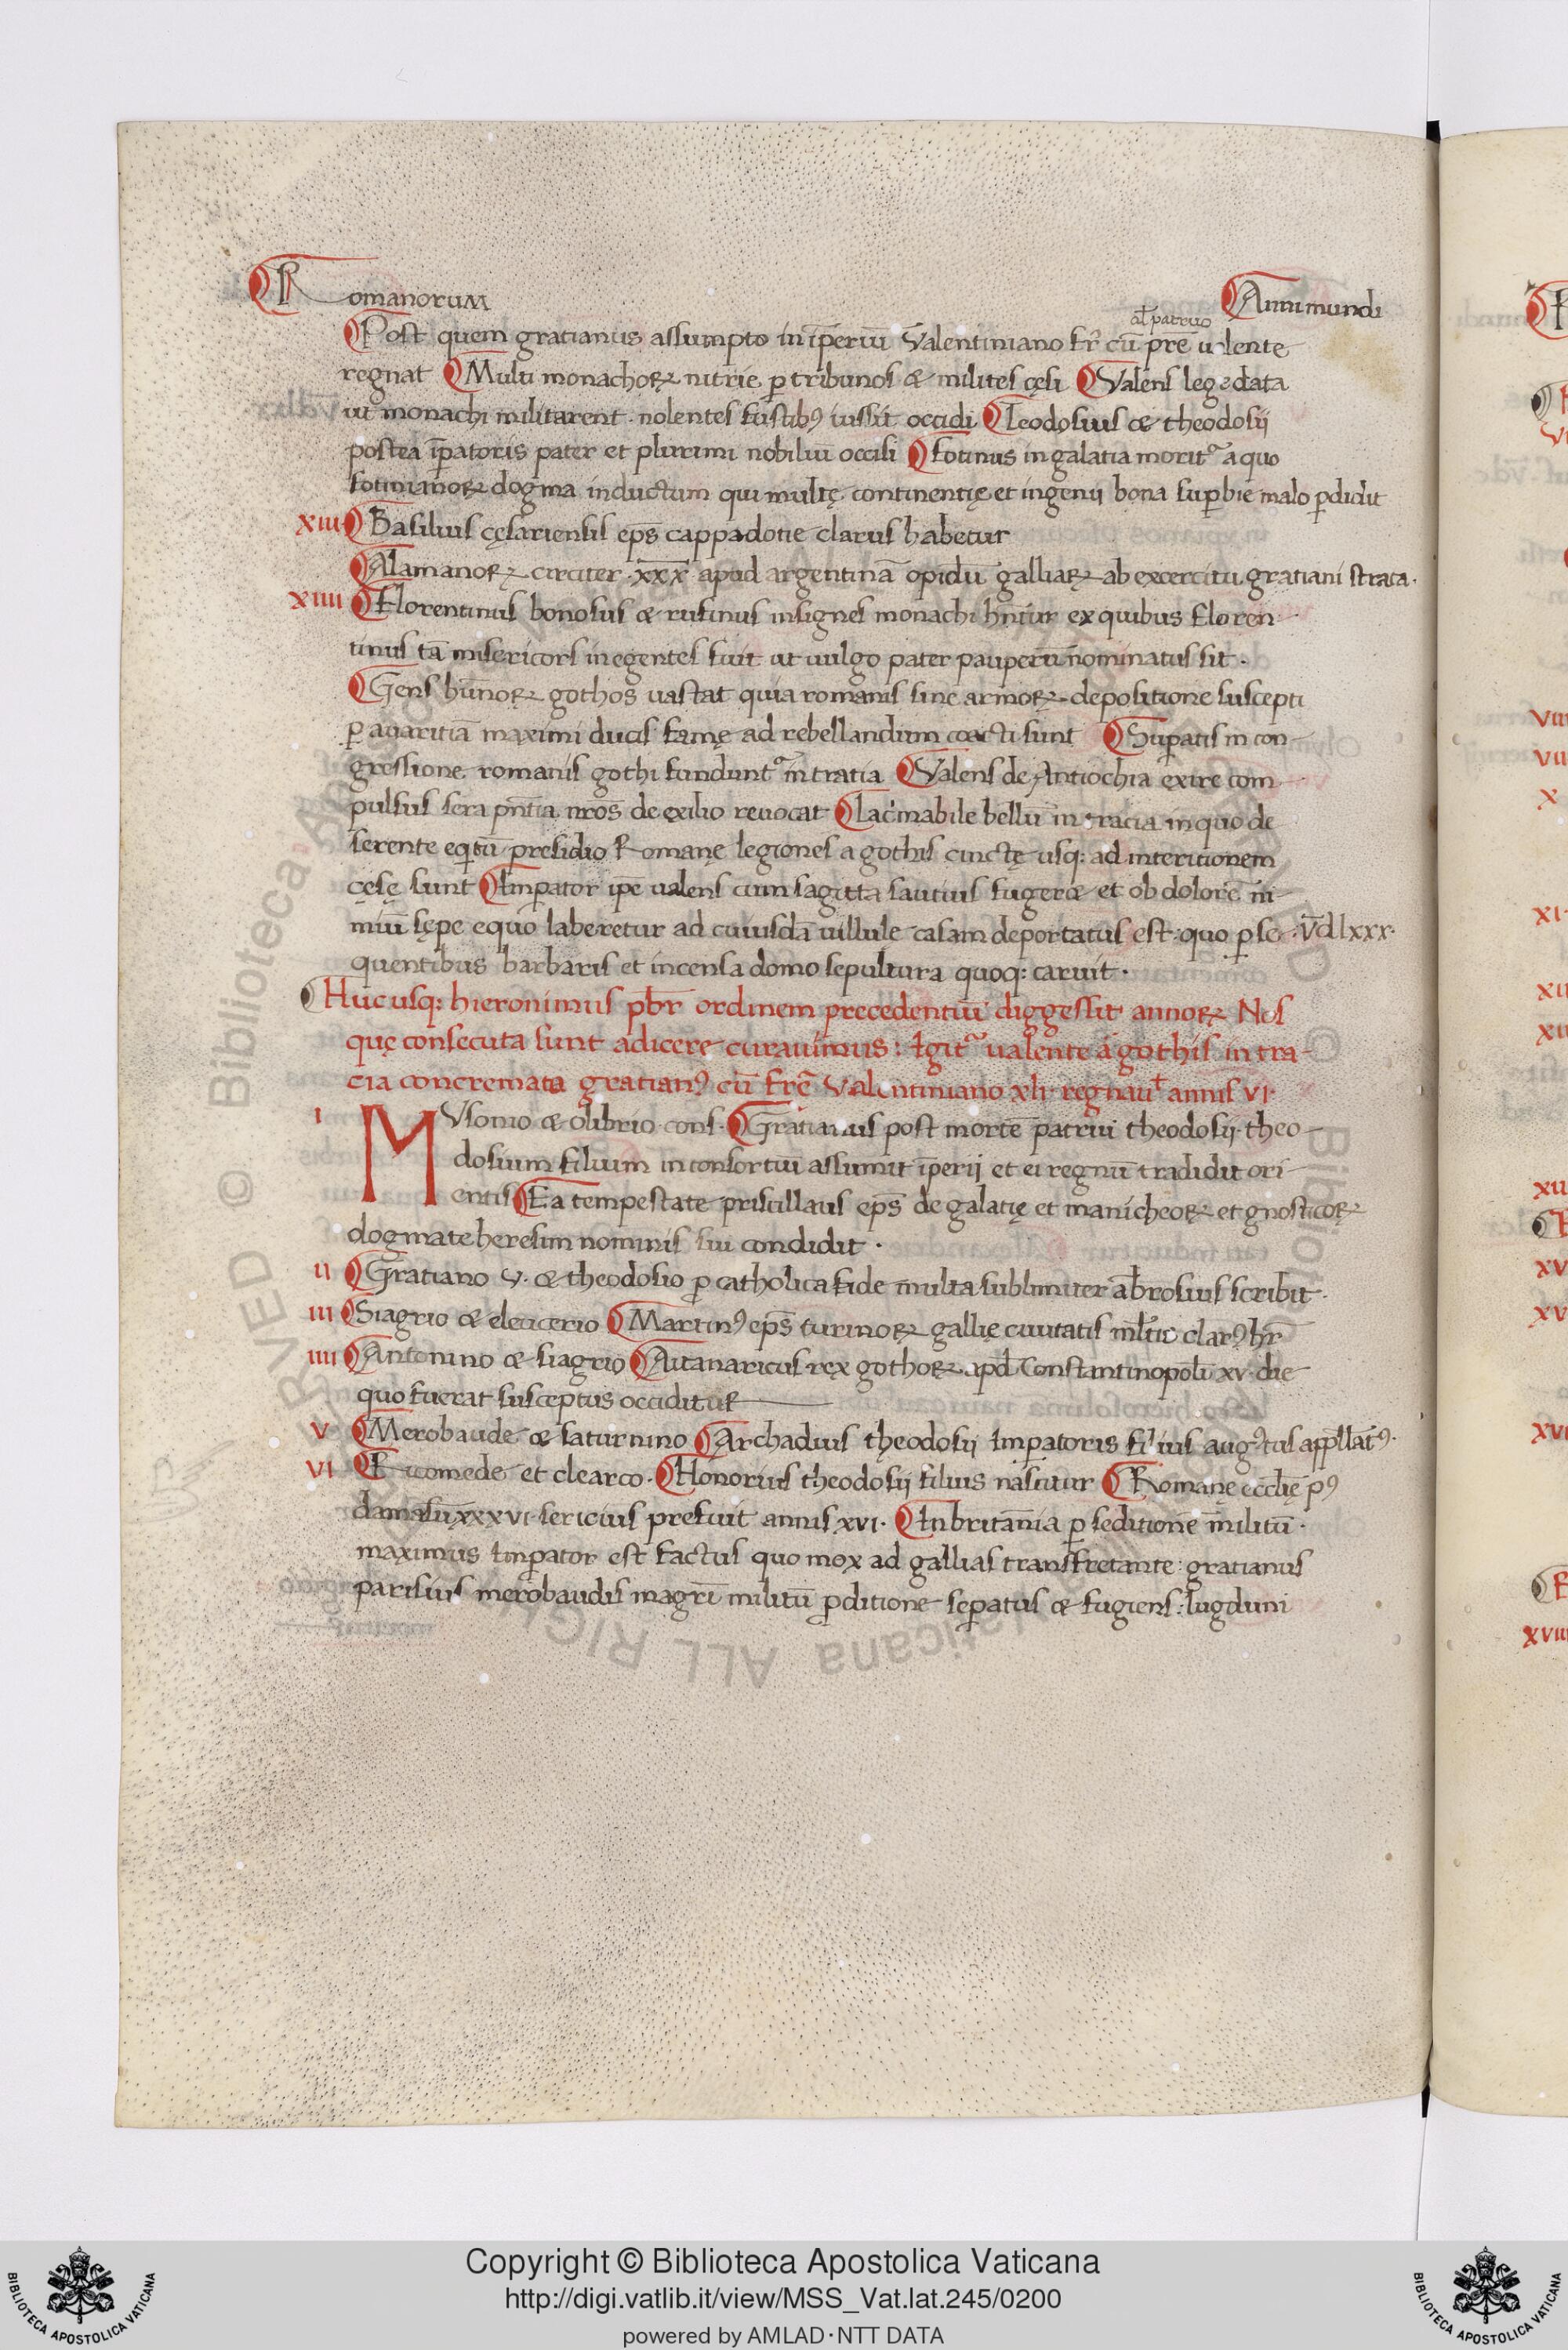 Romanorum
Anni mundi
al̄ patruo
Post quem gratianus assumpto in īperiū Valentiniano fr̄ cū pre ualente
regnat Multi monachoꝝ nitrie ꝑ tribunos & milites cęsi Valens lege data
ut monachi militarent · nolentes fustibꝰ iussit occidi Teodosius & theodosii
postea īpatoris pater et plurimi nobiliū occisi Fotinus in galatia moritᷣ a quo
fotinianoꝝ dogma inductum qui multę continentię et ingenii bona suꝑbie malo ꝑdidit
XIII Basilius cęsariensis ep̄s cappadotie clarus habetur
Alamanoꝝ circiter · x̄x̄x̄ apud argentinā opidū galliaꝝ ab excercitu gratiani strata ·
XIIII Florentinus bonosus & rufinus insignes monachi hn̄tur ex quibus floren
tinus tā misericors in egentes fuit ut uulgo pater pauperū nominatus sit ·
Gens hūnoꝝ gothos uastat quia romanis sine armoꝝ depositione suscepti
ꝑ auaritiā maximi ducis famę ad rebellandum coacti sunt Suꝑatis in con
gressione romanis gothi funduntᷣ in tratia Valens de Antiochia exire com
pulsus sera pn̄tia nr̄os de exilio reuocat Lac̓mabile bellū in tracia in quo de
serente eqitū presidio Romanę legiones a gothis cinctę usq: ad interitionem
cęsę sunt Imꝑator ip̄e ualens cum sagitta saucius fugeret et ob dolorē ni
miū sępe equo laberetur ad cuiusdā uillule casam deportatus est · quo ꝑse · V̄dlxxx ·
quentibus barbaris et incensa domo sepultura quoq: caruit ·
Huc usq: hieronimus pb̄r ordinem precedentiū diggessit annoꝝ Nos
quę consecuta sunt adicere curauimus : Igitᷣ ualente a gothis in tra
cia concremata gratianꝰ cū fr̄e Valentiniano xli regnaut̄ annis VI ·
I MVsonio & olibrio cons · Gratianus post mortē patrui theodosii theo
dosium filium in consortiū assumit īperij et ei regnū tradidit ori
entis Ea tempestate priscillaus ep̄s de galatię et manicheoꝝ et gnosticoꝝ
dogmate heresim nominis sui condidit ·
II Gratiano V · & theodosio ꝑ catholica fide multa sublimiter ābrosius scribit ·
III Siagrio & eleucerio Martinꝰ ep̄s turinoꝝ gallię ciuitatis ml̄tis clarꝰ hr̄
IIII Antonino & siagrio Atanaricus rex gothoꝝ apd̄ Constantinopoli xv · die
quo fuerat susceptus occiditur
V Merobaude & saturnino Archadius theodosii Imꝑatoris filius augꝰtus app̄llatꝰ ·
VI Ricomede et clearco · Honorius theodosij filius nascitur Romanę eccl̄ię pꝰ
damasū xxxvi · sericius prefuit annis xvi · In britannia ꝑ seditione militū ·
maximus Imꝑator est factus quo mox ad gallias transfretante : gratianus
parisius merobaudis magr̄i militū ꝑditione seꝑatus & fugiens : lugduni
VIII
VII
X
XI
XII
Copyright © Biblioteca Apostolica Vaticana
http://digi.vatlib.it/view/MSS_Vat.lat.245/0200
powered by AMLAD·NTT DATA
BIBLIOTECA APOSTOLICA VATICANA
BIBLIOTECA APOSTOLICA VATICANA